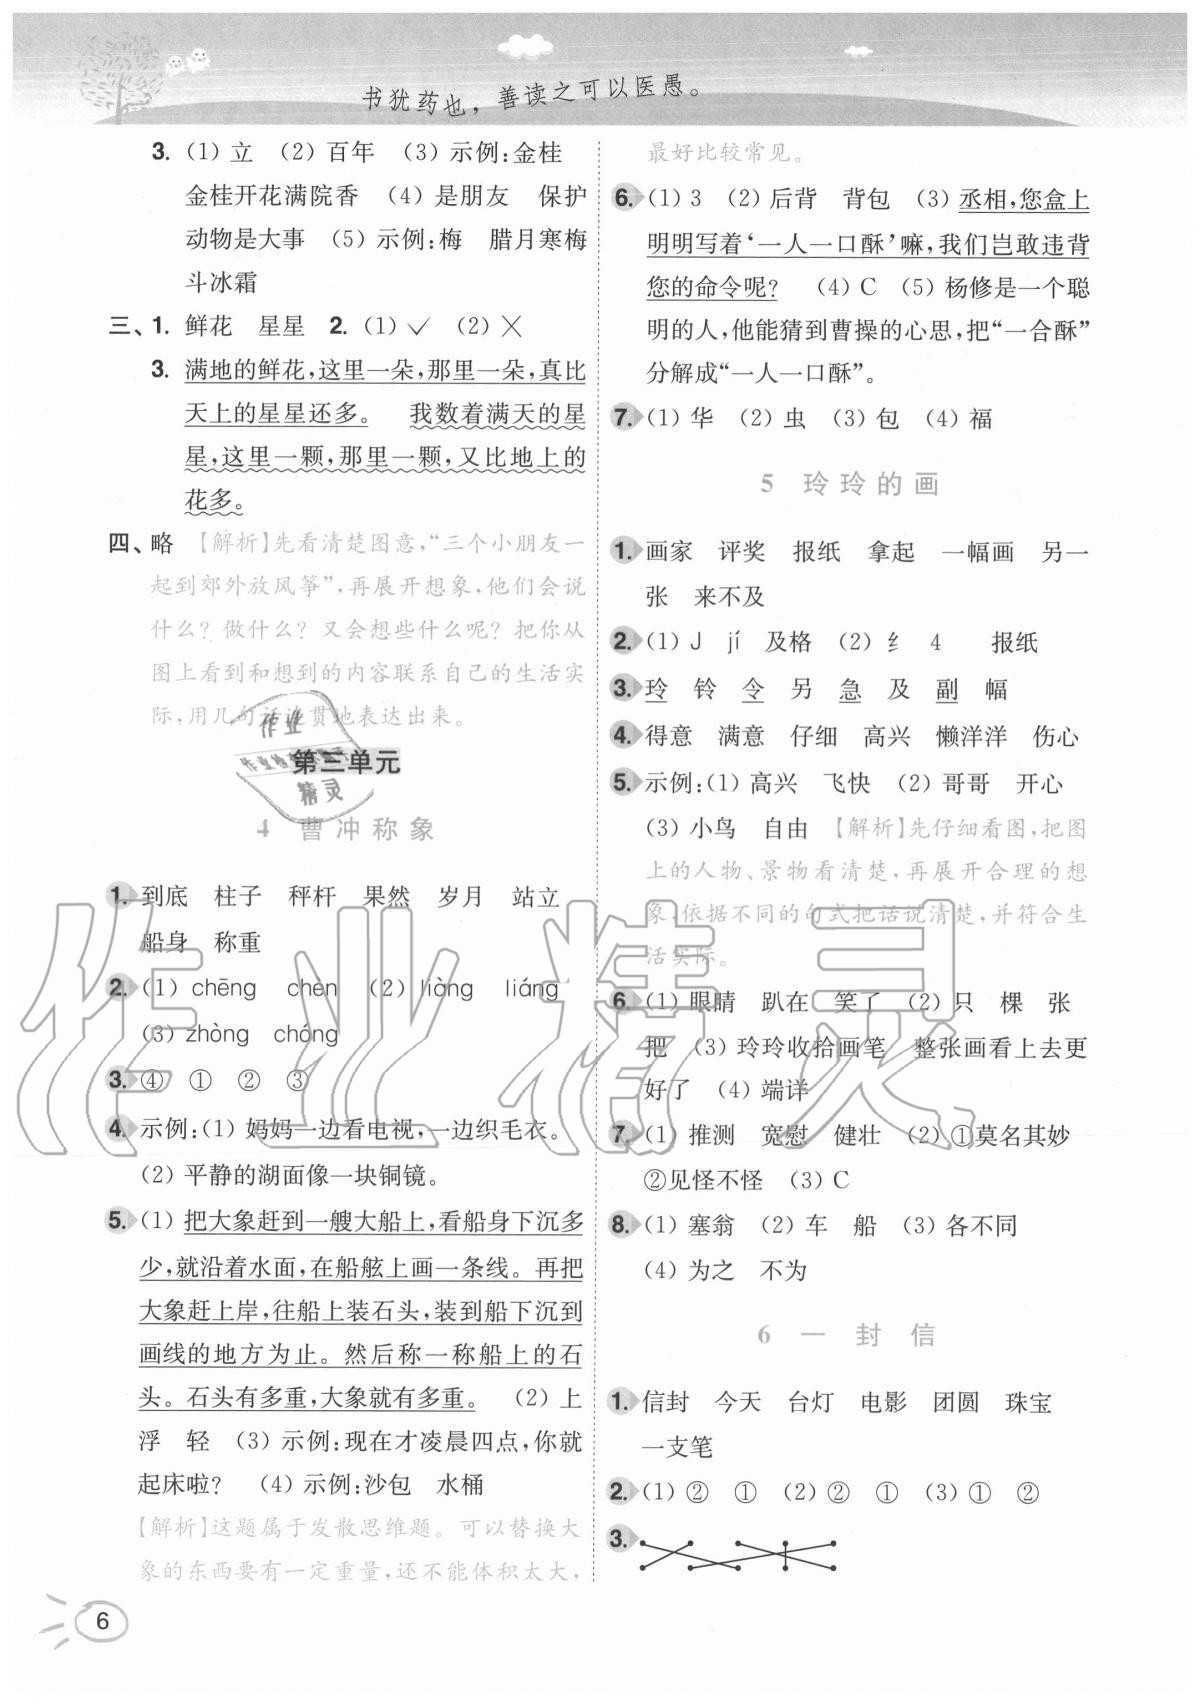 书犹药也，善读之可以医愚。
3. (1) 立 (2) 百年 (3) 示例:金桂
金桂开花满院香 (4) 是朋友 保护
动物是大事 (5) 示例:梅 腊月寒梅
斗冰霜
三、1. 鲜花 星星 2. (1) ✓ (2) ×
3. 满地的鲜花,这里一朵,那里一朵,真比
天上的星星还多。 我数着满天的星
星,这里一颗,那里一颗,又比地上的
花多。
四、略 【解析】先看清楚图意,“三个小朋友一
起到郊外放风筝”,再展开想象,他们会说
什么? 做什么? 又会想些什么呢? 把你从
图上看到和想到的内容联系自己的生活实
际,用几句话连贯地表达出来。
第三单元
4 曹冲称象
1. 到底 柱子 秤杆 果然 岁月 站立
船身 称重
2. (1) chēng chèn (2) liàng liáng
(3) zhòng chóng
3. ④ ① ② ③
4. 示例:(1) 妈妈一边看电视,一边织毛衣。
(2) 平静的湖面像一块铜镜。
5. (1) 把大象赶到一艘大船上,看船身下沉多
少,就沿着水面,在船舷上画一条线。再把
大象赶上岸,往船上装石头,装到船下沉到
画线的地方为止。然后称一称船上的石
头。石头有多重,大象就有多重。 (2) 上
浮 轻 (3) 示例:现在才凌晨四点,你就
起床啦? (4) 示例:沙包 水桶
【解析】这题属于发散思维题。可以替换大
象的东西要有一定重量,还不能体积太大,
最好比较常见。
6. (1) 3 (2) 后背 背包 (3) 丞相,您盒上
明明写着‘一人一口酥’嘛,我们岂敢违背
您的命令呢? (4) C (5) 杨修是一个聪
明的人,他能猜到曹操的心思,把“一合酥”
分解成“一人一口酥”。
7. (1) 华 (2) 虫 (3) 包 (4) 福
5 玲玲的画
1. 画家 评奖 报纸 拿起 一幅画 另一
张 来不及
2. (1) J jí 及格 (2) 纟 4 报纸
3. 玲 铃 令 另 急 及 副 幅
4. 得意 满意 仔细 高兴 懒洋洋 伤心
5. 示例:(1) 高兴 飞快 (2) 哥哥 开心
(3) 小鸟 自由 【解析】先仔细看图,把图
上的人物、景物看清楚,再展开合理的想
象,依据不同的句式把话说清楚,并符合生
活实际。
6. (1) 眼睛 趴在 笑了 (2) 只 棵 张
把 (3) 玲玲收拾画笔 整张画看上去更
好了 (4) 端详
7. (1) 推测 宽慰 健壮 (2) ①莫名其妙
②见怪不怪 (3) C
8. (1) 塞翁 (2) 车 船 (3) 各不同
(4) 为之 不为
6 一封信
1. 信封 今天 台灯 电影 团圆 珠宝
一支笔
2. (1) ② ① (2) ② ① (3) ① ②
3.
6
作业精灵